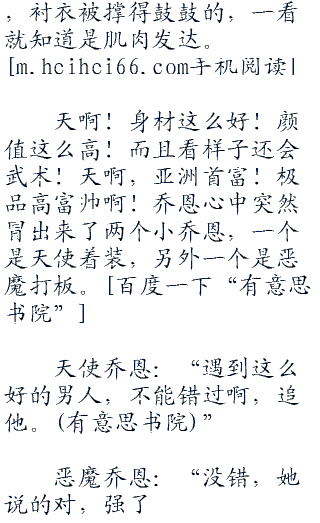 ，衬衣被撑得鼓鼓的，一看
就知道是肌肉发达。
[m.hcihci66.com手机阅读|
天啊！身材这么好！颜
值这么高！而且看样子还会
武术！天啊，亚洲首富！极
品高富帅啊！乔恩心中突然
冒出来了两个小乔恩，一个
是天使着装，另外一个是恶
魔打板。[百度一下“有意思
书院”]
天使乔恩：“遇到这么
好的男人，不能错过啊，追
他。(有意思书院)”
恶魔乔恩：“没错，她
说的对，强了